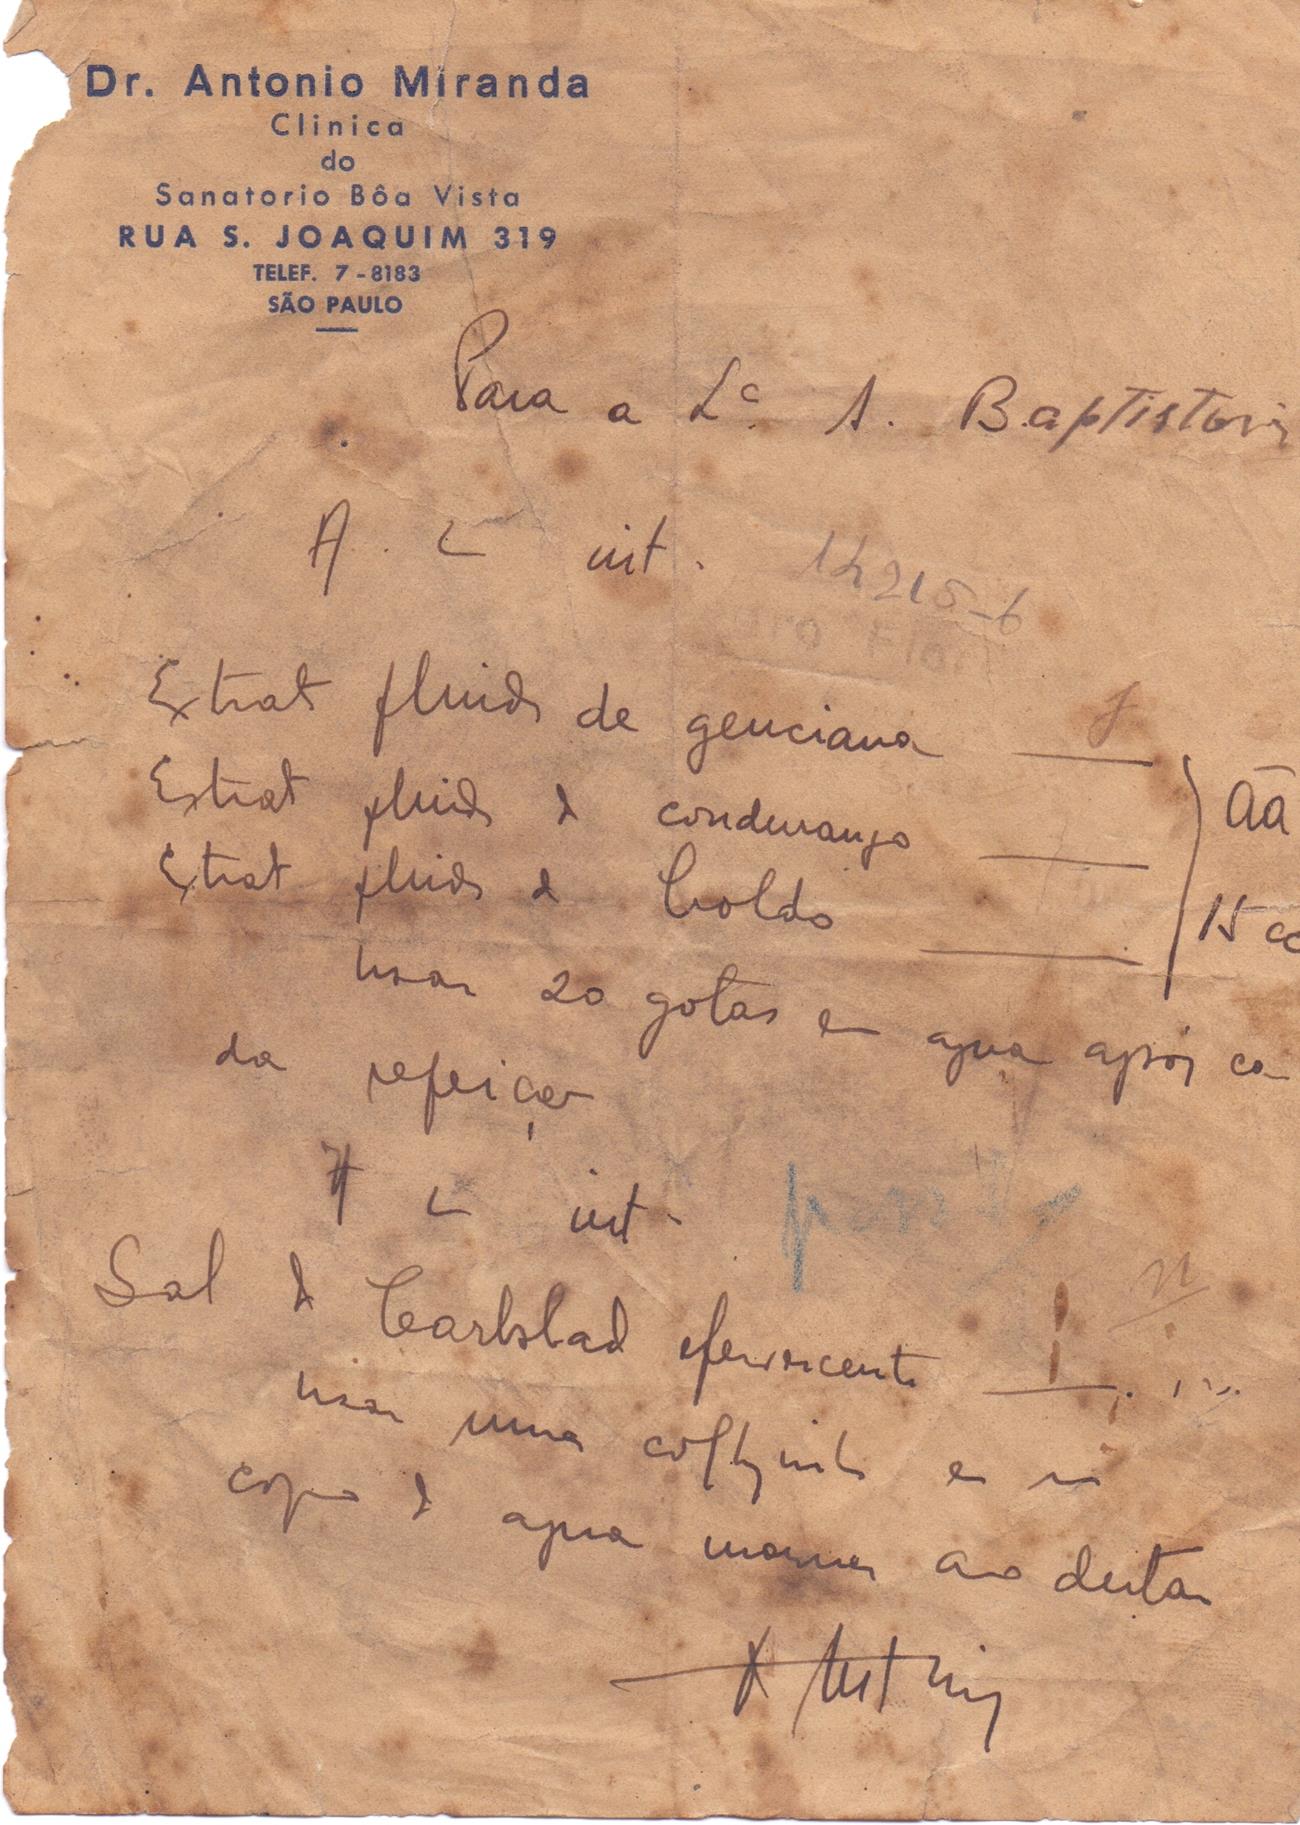 Dr. Antonio Miranda
Clinica
do
Sanatorio Bôa Vista
RUA S. JOAQUIM 319
TELEF. 7-8183
SÃO PAULO
Para a A. Baptistoni
int.
14215-6
Extrat fluido de genciana
Extrat fluido d condurango āā
Extrat fluido d boldo 15 cc
usar 20 gotas em agua após ca
da refeição
int.
Sal d Carlsbad efervescente
usar uma em um
copo d agua morna ao deitar